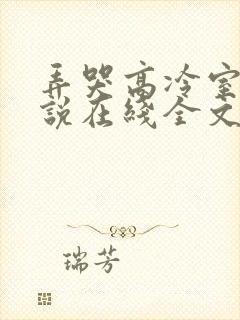 弄哭高冷室
说在线全文
瑞芳